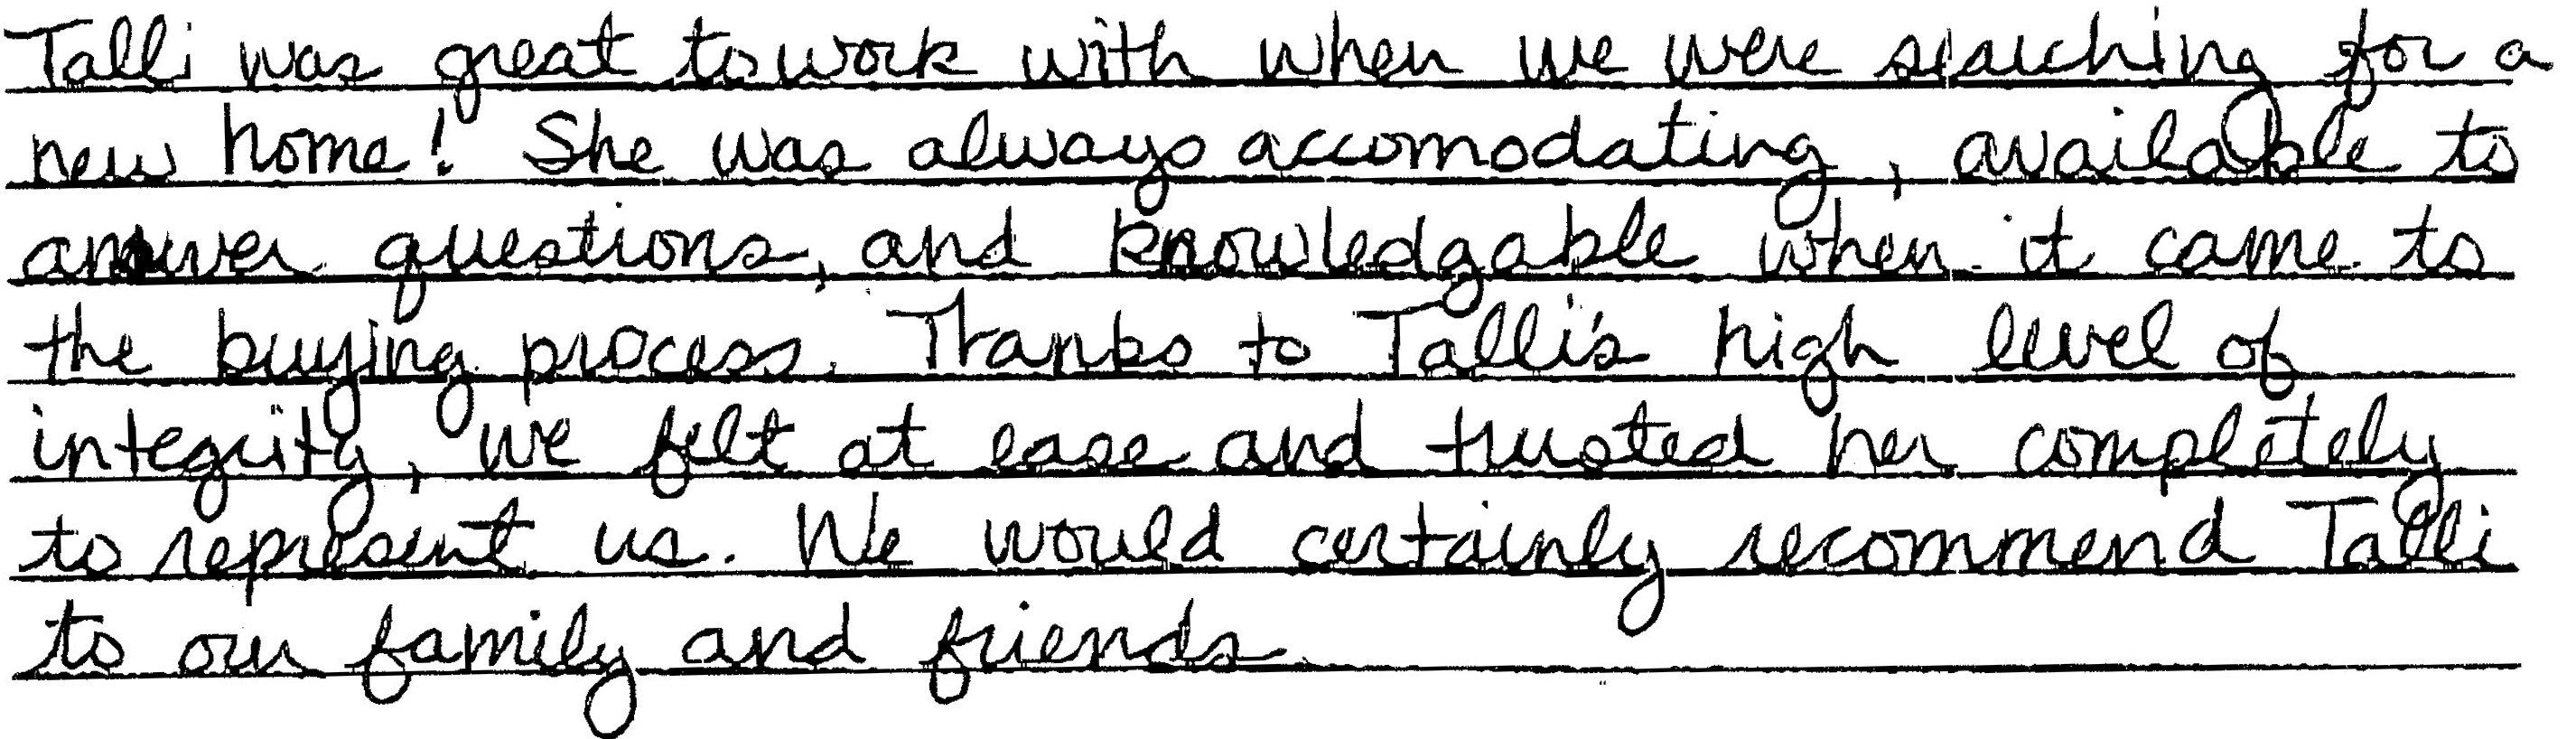 Talli was great to work with when we were searching for a
new home! She was always accomodating, available to
answer questions, and knowledgable when it came to
the buying process. Thanks to Talli's high level of
integrity, we felt at ease and trusted her completely
to represent us. We would certainly recommend Talli
to our family and friends.